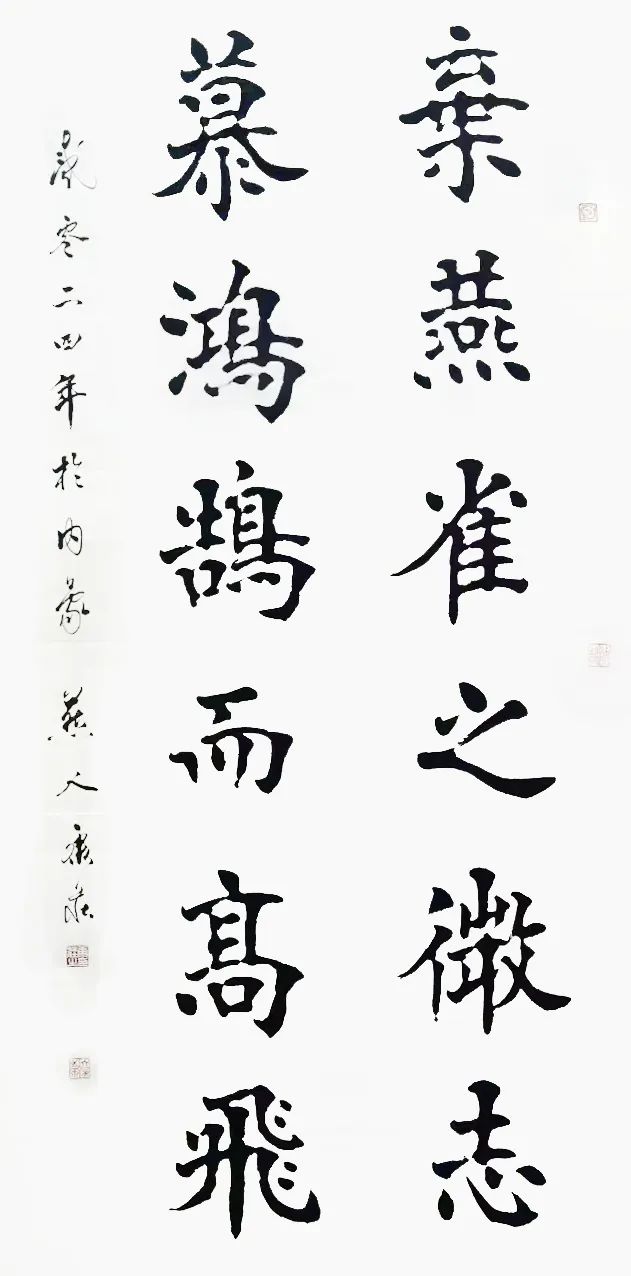 棄燕雀之微志
慕鴻鵠而髙飛
零二四年於内蒙 燕人